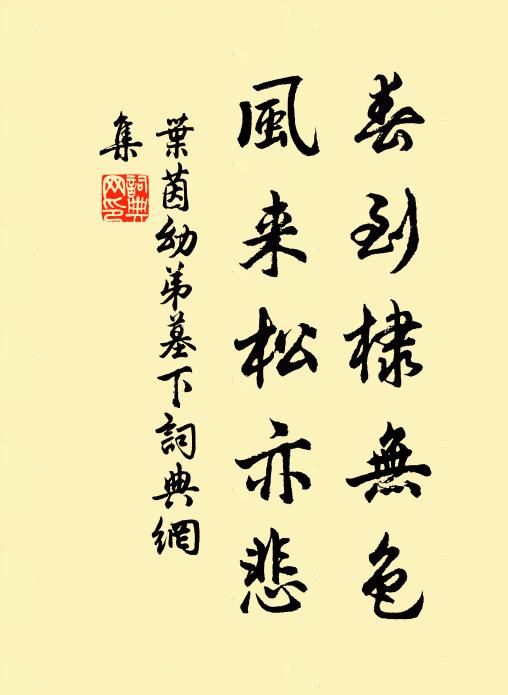 春到棣無色
風来松亦悲
葉茵幼弟墓下詞典網
集
詞典
网印